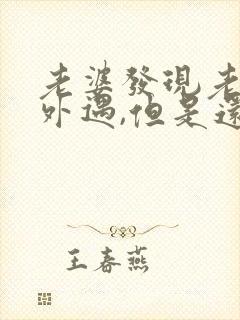 老婆發現老
外遇,但是還
王春燕